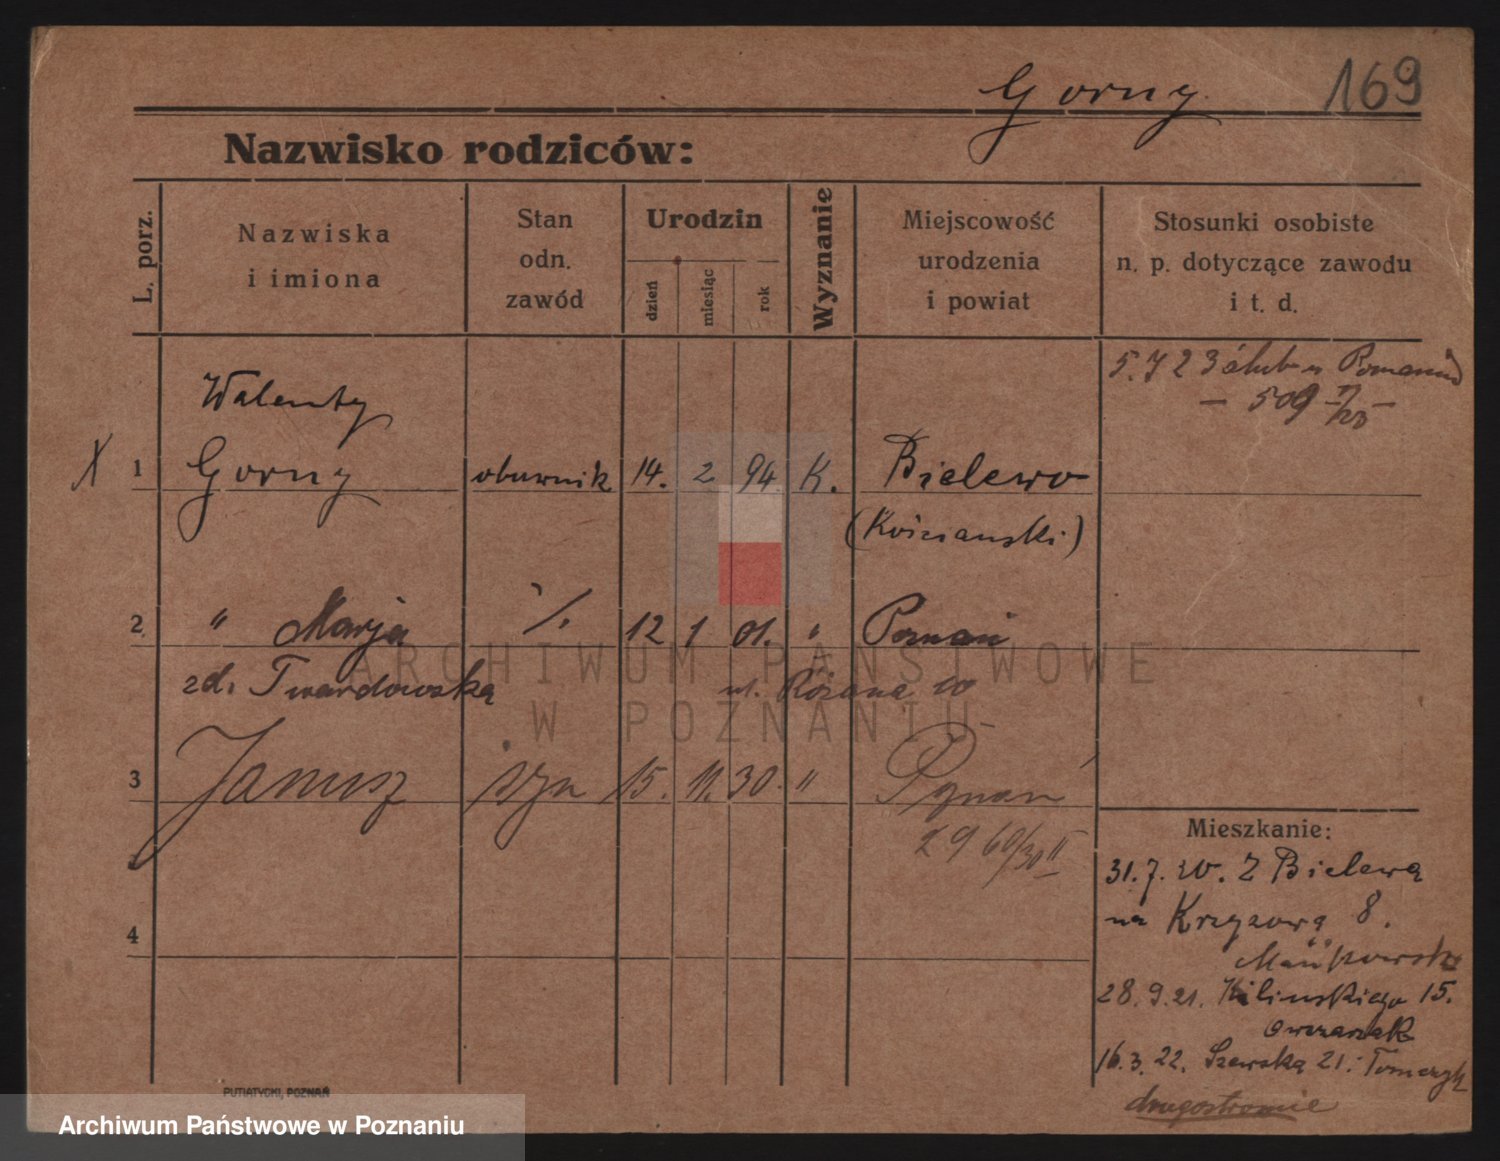 Gorny 169
Nazwisko rodziców:
L. porz.
Nazwiska
i imiona
Stan
odn.
zawód
Urodzin
dzień
miesiąc
rok
Wyznanie
Miejscowość
urodzenia
i powiat
Stosunki osobiste
n. p. dotyczące zawodu
i t. d.
5. 7 23 ślub w
— 509
Walenty
X 1 Gorny obuwnik 14. 2 94 K. Bielewo
(Kościański)
2 " Marja ./. 12 1 01. " Poznań
zd. Twardowska ul. Różana 10
3 Janusz syn 15. 11. 30. " Poznań
2960/30 II
4
Mieszkanie:
31.7.20. Z Bielewa
na Krzyzową 8.
Mańkowski
28.9.21. Kilinskiego 15.
Owczarzak
16.3.22. Szewska 21: Tomczyk
drugostronnie
PUTIATYCKI, POZNAŃ
ARCHIWUM PAŃSTWOWE
W POZNANIU
Archiwum Państwowe w Poznaniu